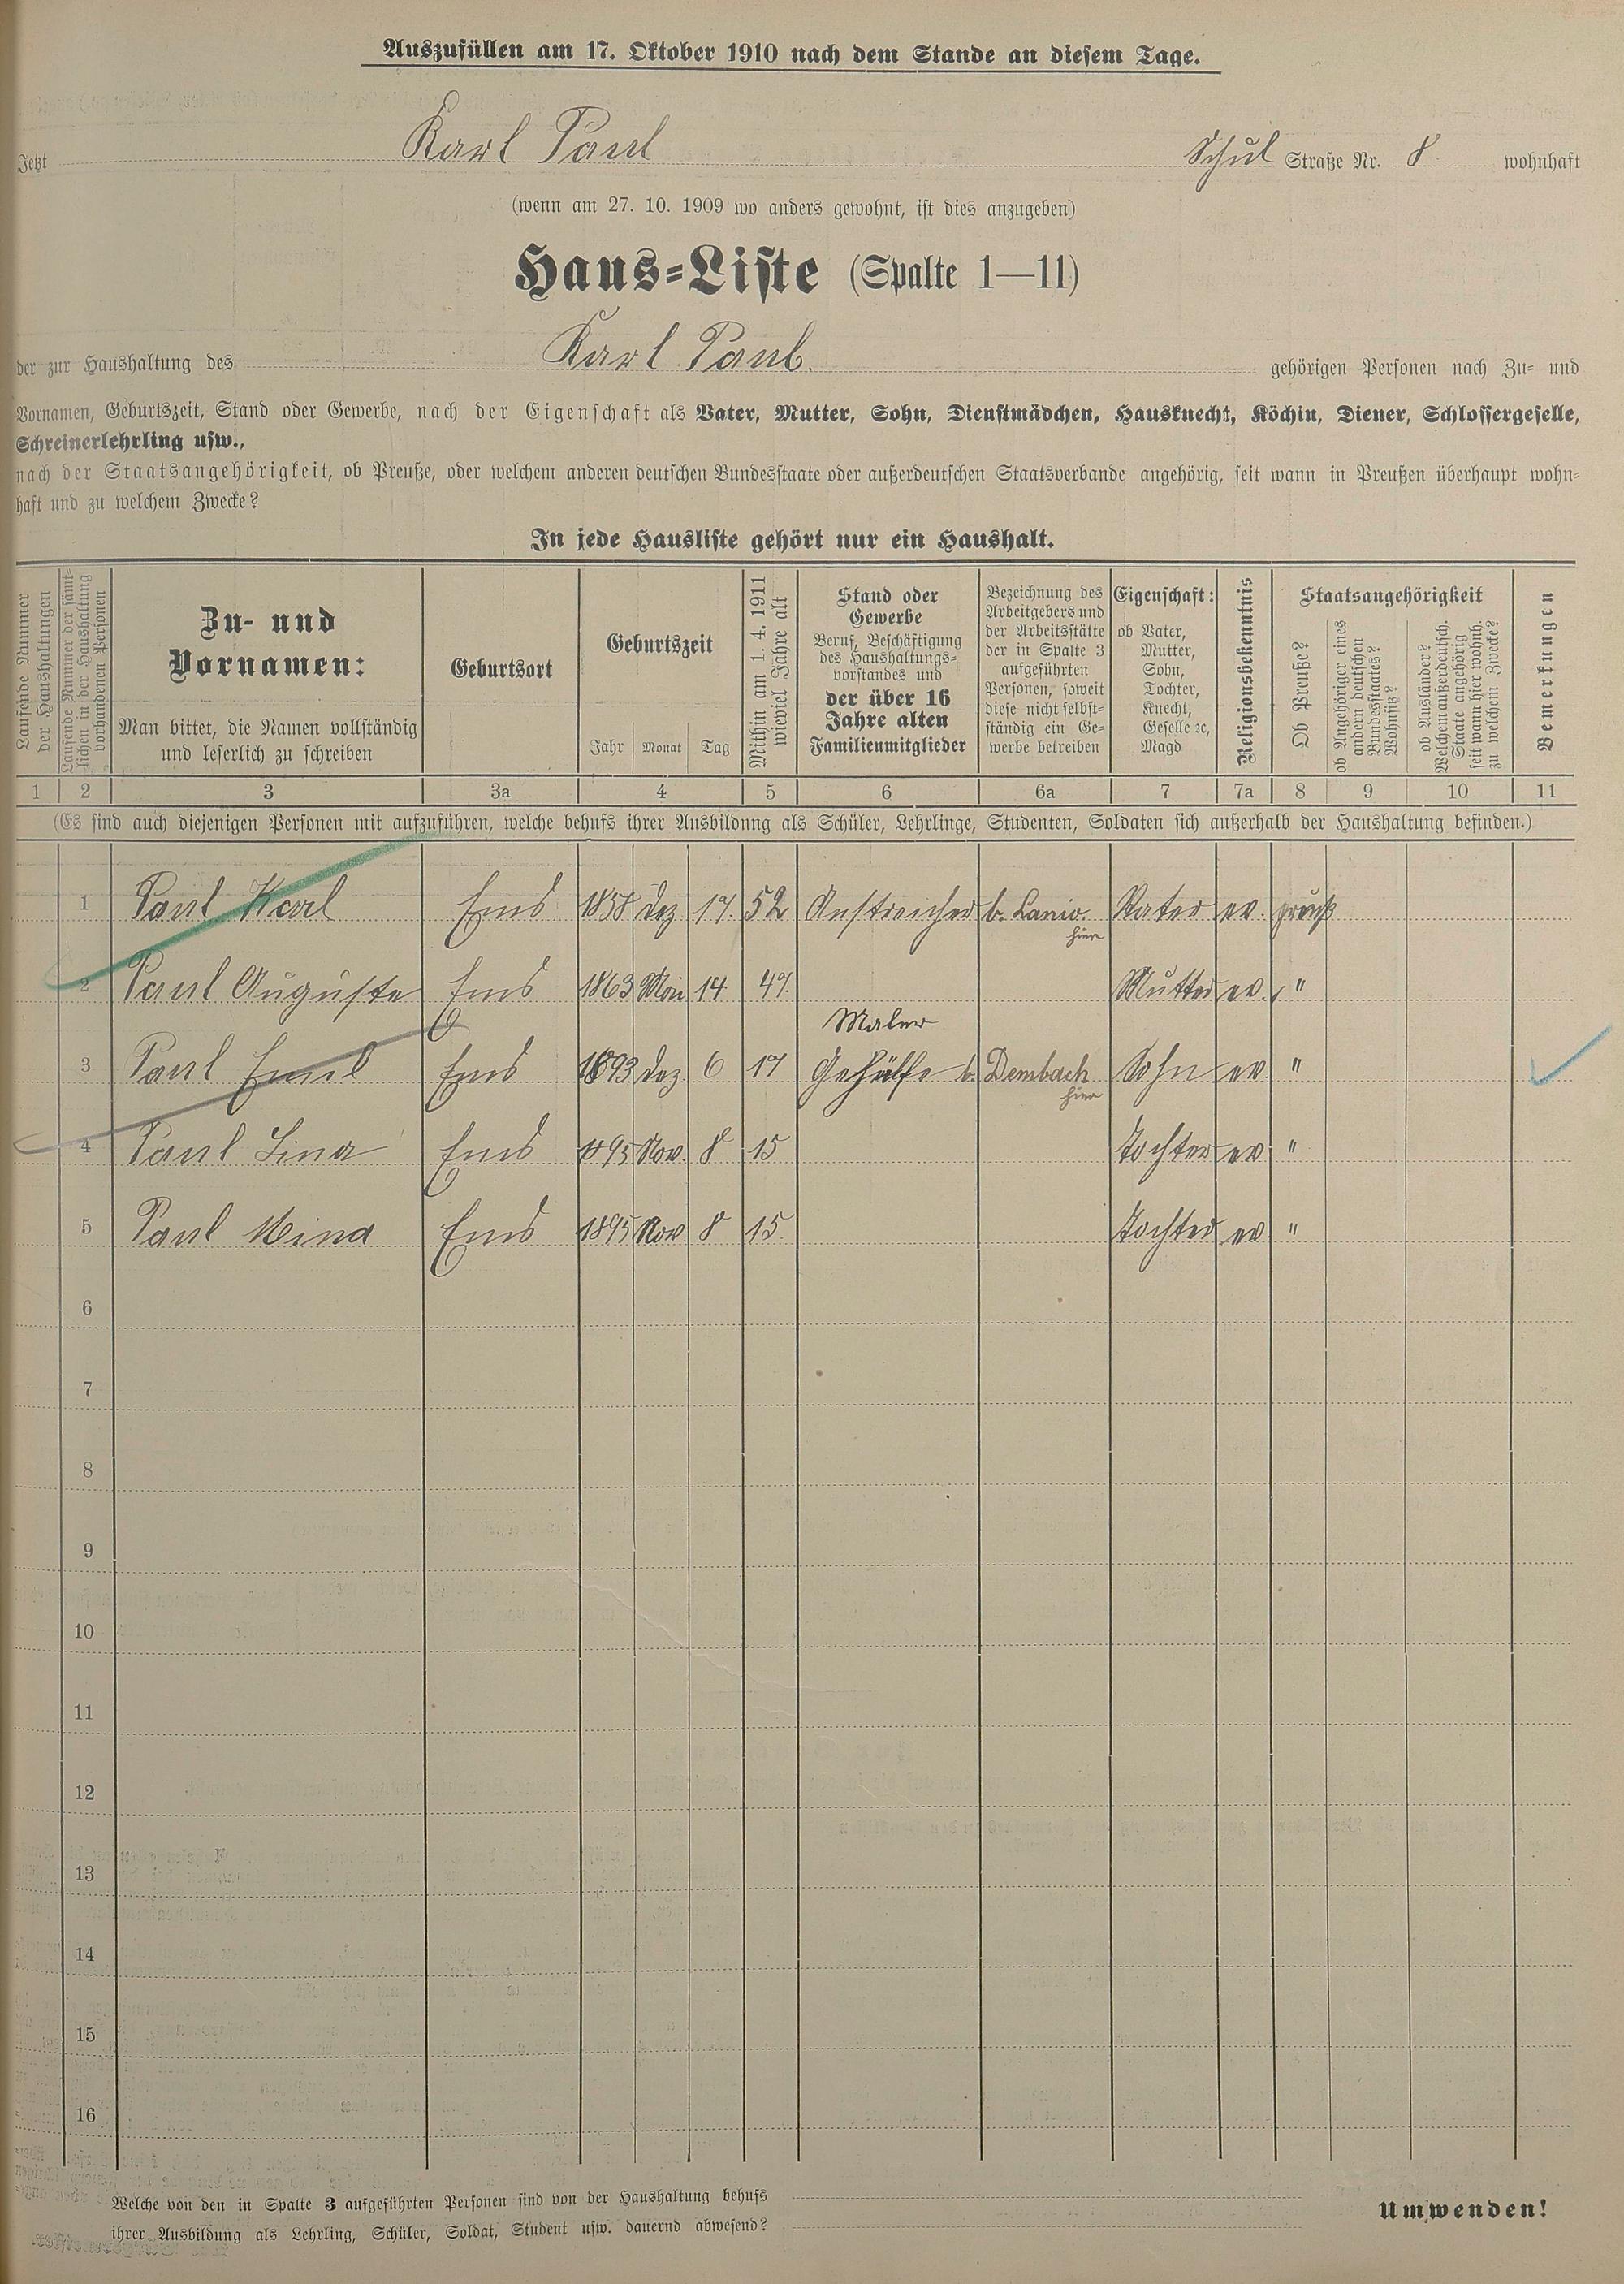 Auszufüllen am 17. Oktober 1910 nach dem Stande an diesem Tage.
Jetzt Karl Paul Schul Straße Nr. 8 wohnhaft
(wenn am 27. 10. 1909 wo anders gewohnt, ist dies anzugeben)
Haus-Liste (Spalte 1—11)
der zur Haushaltung des Karl Paul. gehörigen Personen nach Zu- und
Vornamen, Geburtszeit, Stand oder Gewerbe, nach der Eigenschaft als Vater, Mutter, Sohn, Dienstmädchen, Hausknecht, Köchin, Diener, Schlossergeselle,
Schreinerlehrling usw.,
nach der Staatsangehörigkeit, ob Preuße, oder welchem anderen deutschen Bundesstaate oder außerdeutschen Staatsverbande angehörig, seit wann in Preußen überhaupt wohn-
haft und zu welchem Zwecke?
In jede Hausliste gehört nur ein Haushalt.
Laufende Nummer
der Haushaltungen
Laufende Nummer der sämt-
lichen in der Haushaltung
vorhandenen Personen
Zu- und
Vornamen:
Man bittet, die Namen vollständig
und leserlich zu schreiben
Geburtsort
Geburtszeit
Jahr Monat Tag
Mithin am 1. 4. 1911
wieviel Jahre alt
Stand oder
Gewerbe
Beruf, Beschäftigung
des Haushaltungs-
vorstandes und
der über 16
Jahre alten
Familienmitglieder
Bezeichnung des
Arbeitgebers und
der Arbeitsstätte
der in Spalte 3
aufgeführten
Personen, soweit
diese nicht selbst-
ständig ein Ge-
werbe betreiben
Eigenschaft:
ob Vater,
Mutter,
Sohn,
Tochter,
Knecht,
Geselle ec,
Magd
Religionsbekenntnis
Staatsangehörigkeit
Ob Preuße?
ob Angehöriger eines
andern deutschen
Bundesstaates?
Wohnsitz?
ob Ausländer?
Welchem außerdeutsch.
Staate angehörig
seit wann hier wohnh.
zu welchem Zwecke?
Bemerkungen
1 2 3 3a 4 5 6 6a 7 7a 8 9 10 11
(Es sind auch diejenigen Personen mit aufzuführen, welche behufs ihrer Ausbildung als Schüler, Lehrlinge, Studenten, Soldaten sich außerhalb der Haushaltung befinden.)
1 Paul Karl Ems 1858 Dez 17. 52 Anstreicher b. Lanio. hier Vater ev. preuß
2 Paul Auguste Ems 1863 Mai 14 47. Mutter ev. "
3 Paul Emil Ems 1893 Dez 6 17 Maler Gehülfe b. Dembach hier Sohn ev "
4 Paul Lina Ems 1895 Nov. 8 15 Tochter ev. "
5 Paul Mina Ems 1895 Nov 8 15. Tochter ev. "
6
7
8
9
10
11
12
13
14
15
16
Welche von den in Spalte 3 aufgeführten Personen sind von der Haushaltung behufs
ihrer Ausbildung als Lehrling, Schüler, Soldat, Student usw. dauernd abwesend?
Umwenden!